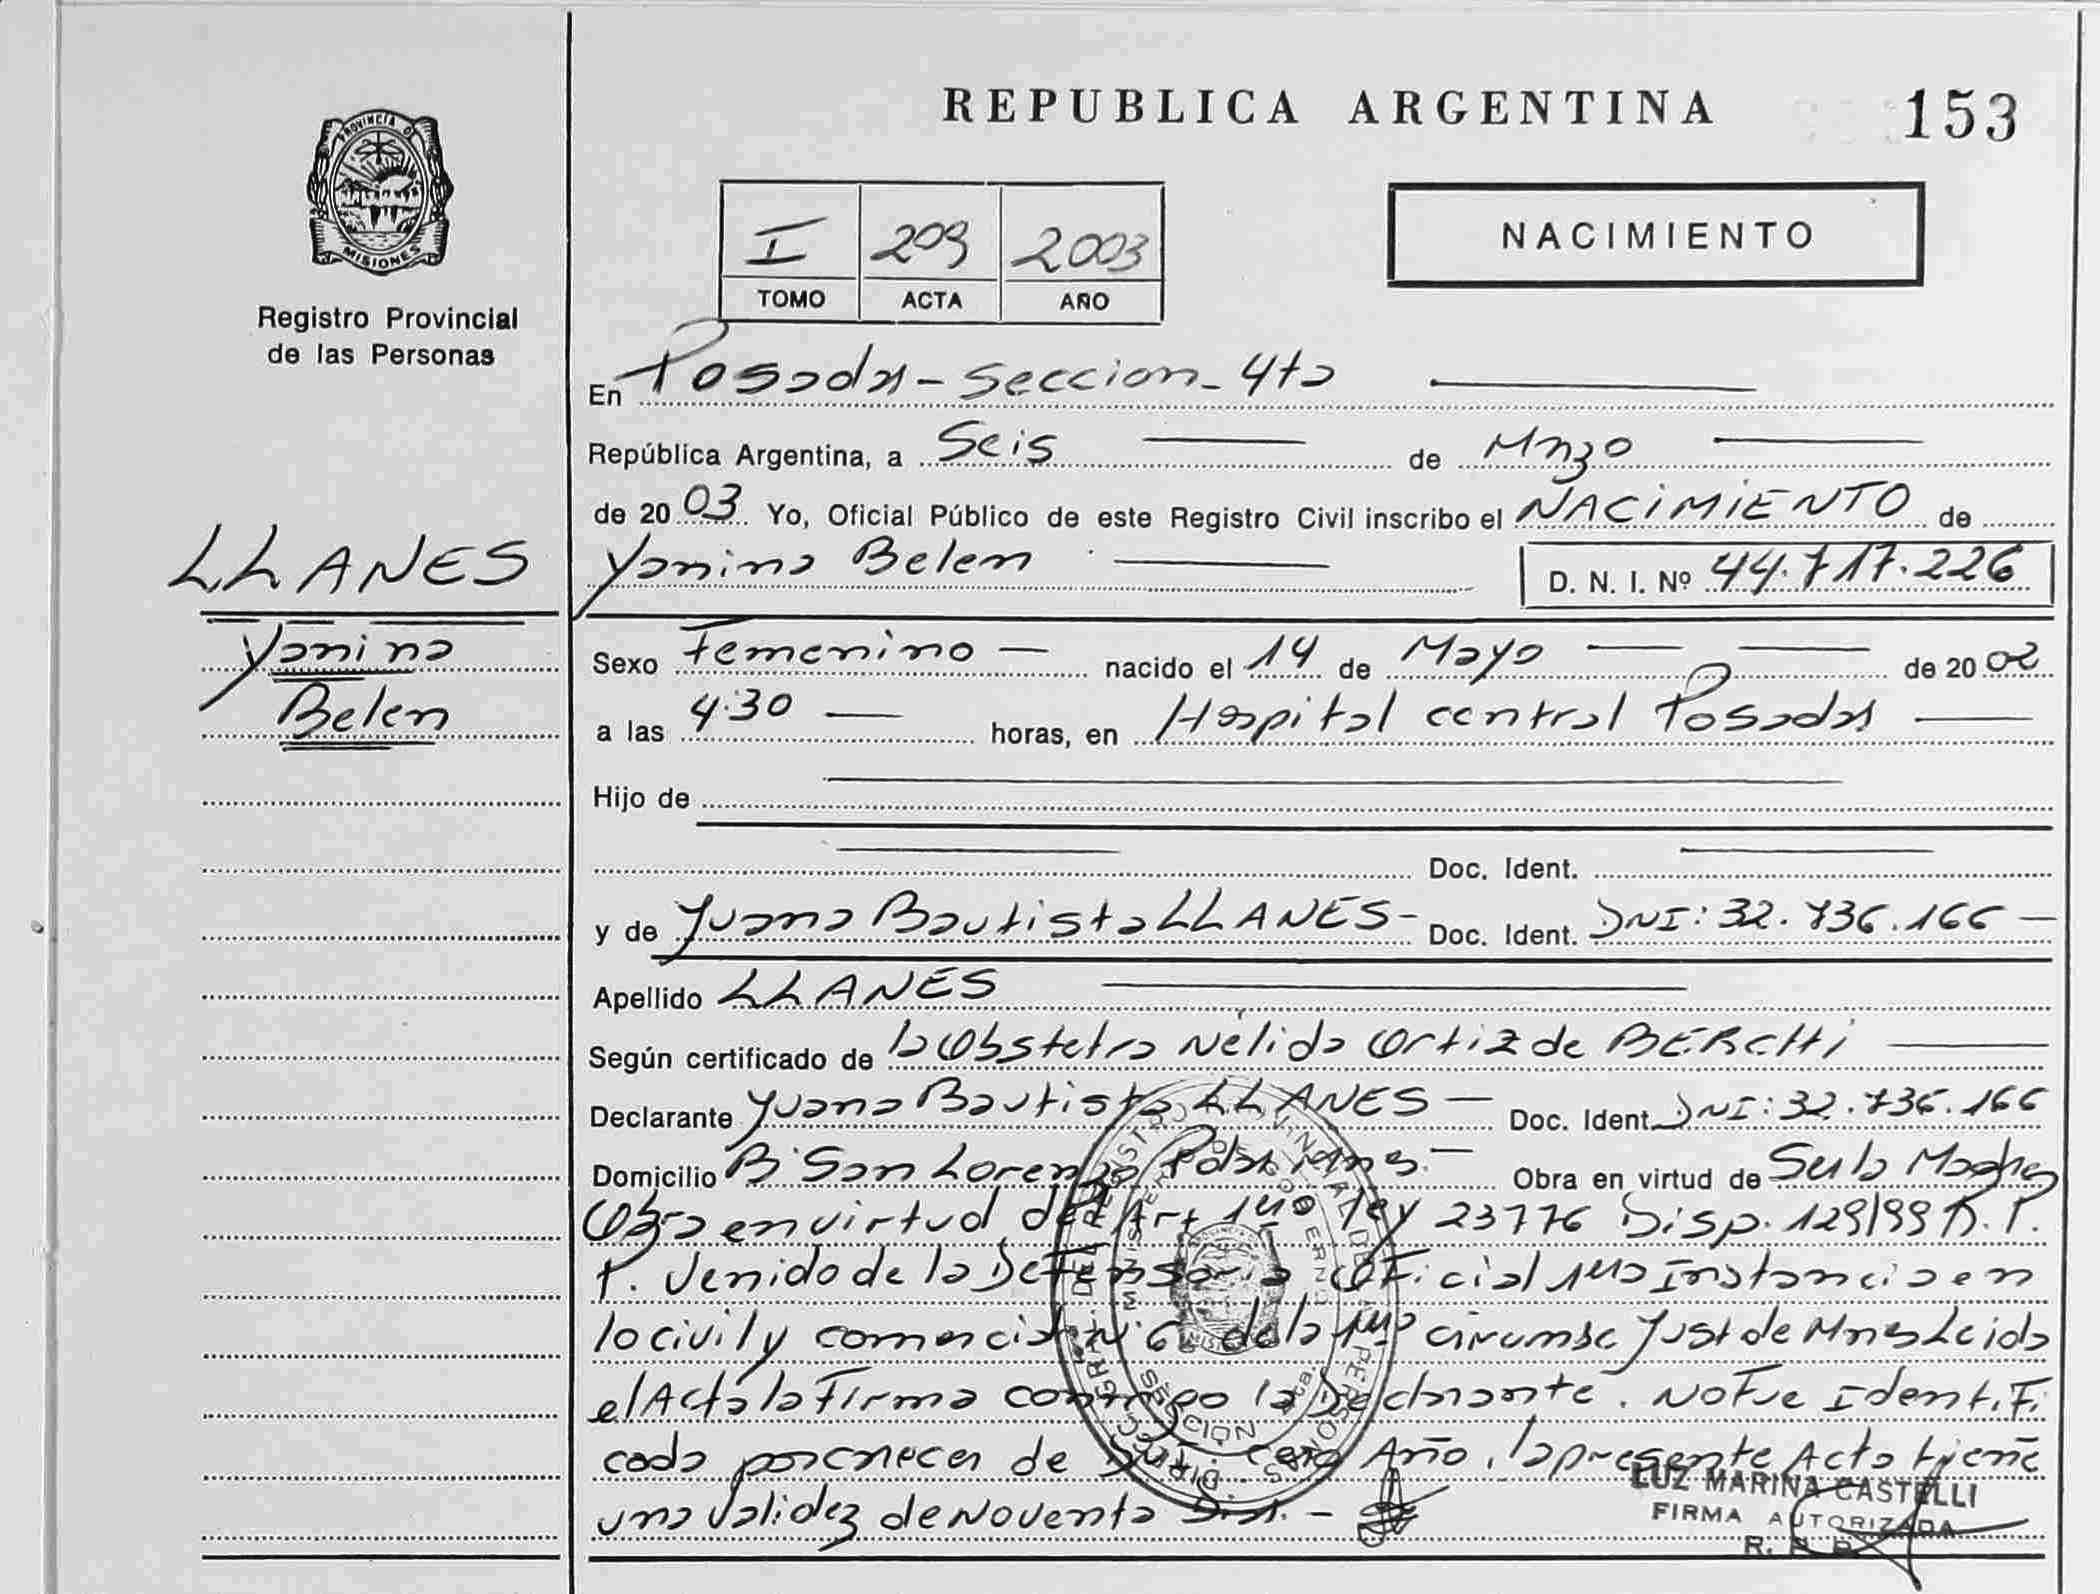 REPUBLICA ARGENTINA 153
PROVINCIA DE MISIONES
Registro Provincial
de las Personas
NACIMIENTO
I 209 2003
TOMO ACTA AÑO
En Posadas - Seccion - 4ta
República Argentina, a Seis de Marzo
de 2003 Yo, Oficial Público de este Registro Civil inscribo el NACIMIENTO de
Yanina Belen D. N. I. Nº 44.717.226
LLANES
Yanina
Belen
Sexo Femenino - nacido el 14 de Mayo de 2002
a las 4:30 horas, en Hospital central Posadas
Hijo de
Doc. Ident.
y de Juana Bautista LLANES - Doc. Ident. DNI: 32.736.166
Apellido LLANES
Según certificado de la Obstetra Nelida Ortiz de BERCHI
Declarante Juana Bautista LLANES - Doc. Ident. DNI: 32.736.166
Domicilio Bº San Lorenzo Pdas Obra en virtud de Ser la Madre
Obra en virtud del Art 1ro ley 23776 Disp. 129/99 R. P.
P. Venido de la Defensoria Oficial 1ra Instancia en
lo civil y comercial Nº 6 de la 1ra circunsc Just de Mnes Leida
el Acta la Firma conmigo la Declarante. No Fue Identifi
cada por crecer de cero Año, la presente Acta tiene
una validez de Noventa Dias. -
DIRECC. GRAL. DEL REGISTRO PROVINCIAL DE LAS PERSONAS
MINISTERIO DE GOBIERNO
SECCION 4ta.
LUZ MARINA CASTELLI
FIRMA AUTORIZADA
R. P. P.